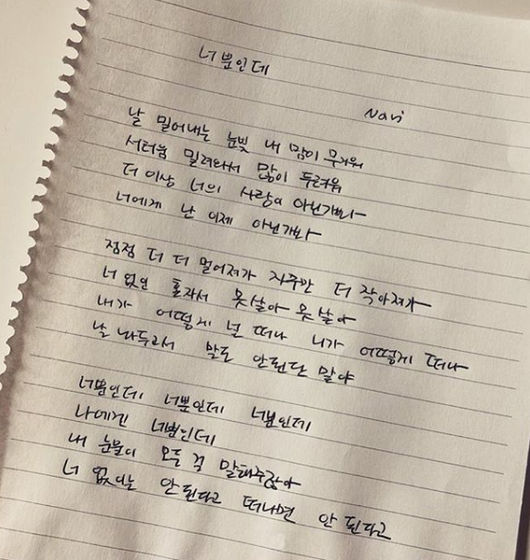 너뿐인데
Navi
날 밀어내는 눈빛 내 맘이 무거워
서러움 밀려와서 맘이 두려워
더 이상 너의 사랑이 아닌가봐
너에게 난 이제 아닌가봐
점점 더 더 멀어져가 자꾸만 더 작아져가
너 없인 혼자서 못살아 못살아
내가 어떻게 널 떠나 니가 어떻게 떠나
날 놔두고서 말도 안된단 말야
너뿐인데 너뿐인데 너뿐인데
나에겐 너뿐인데
내 눈물이 모든 걸 말해주잖아
너 없이는 안된다고 떠나면 안 된다고